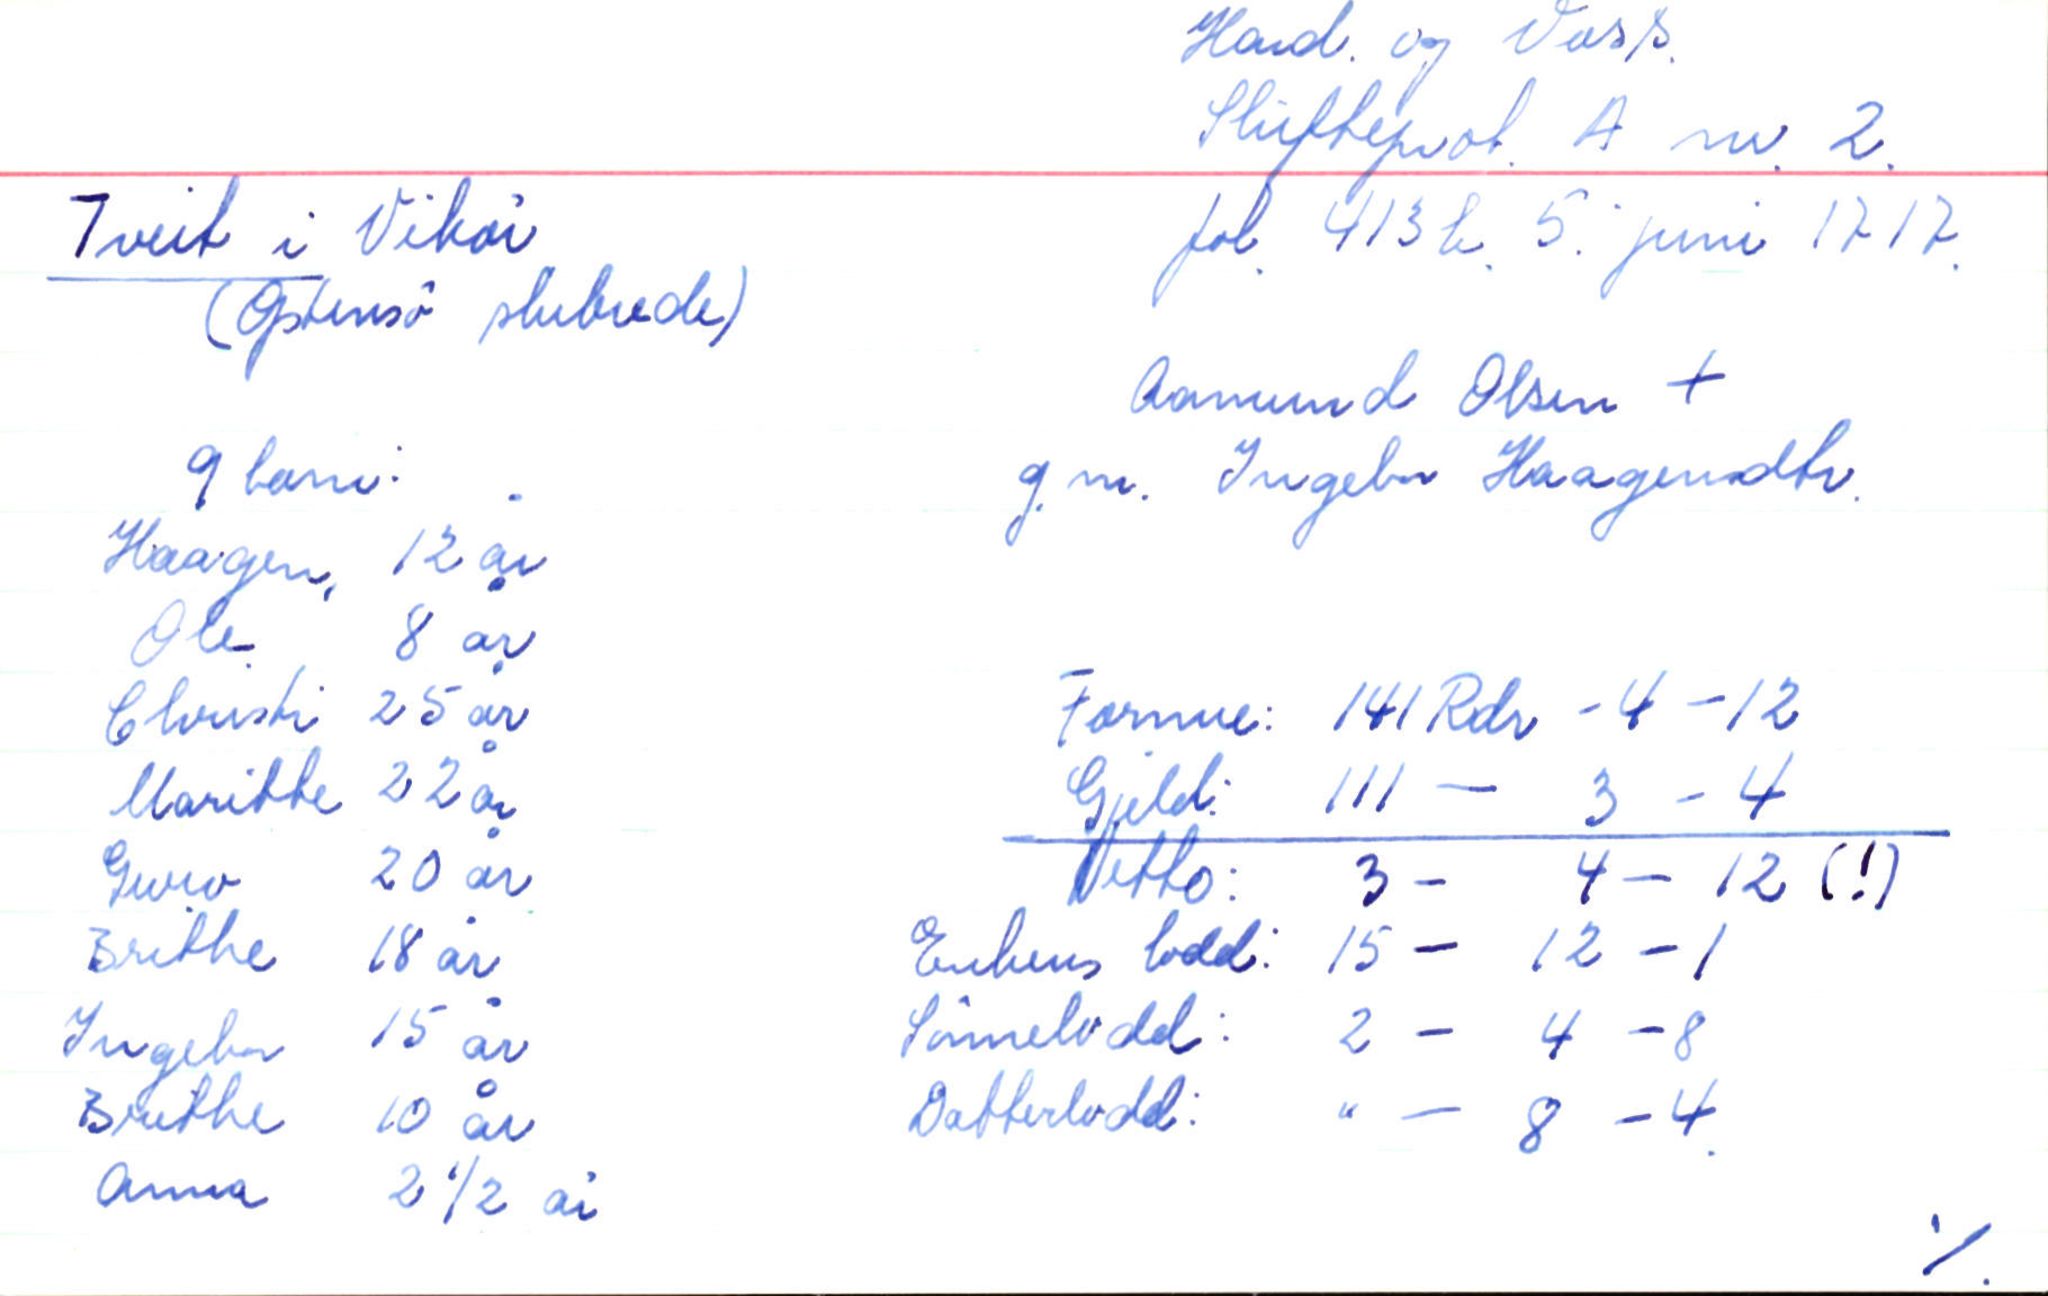 Hard. og Voss.
Skifteprot. A nr. 2.
fol. 413 b. 5. juni 1717.
Tveit i Vikør
(Østensø skibrede)
Aamund Olsen +
g. m. Ingebor Haagensdtr.
9 barn:
Haagen, 12 år
Ole 8 år
Christi 25 år
Marithe 22 år
Guro 20 år
Brithe 18 år
Ingebor 15 år
Brithe 10 år
Anna 2 1/2 år
Formue: 141 Rdr - 4 - 12
Gjeld: 111 - 3 - 4
Netto: 3 - 4 - 12 (!)
Enkens lodd: 15 - 12 - 1
Sønnelodd: 2 - 4 - 8
Datterlodd: " - 8 - 4.